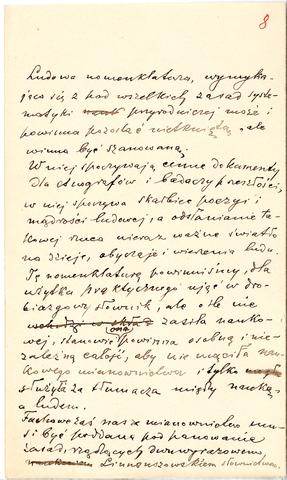 8
Ludowa nomenklatura, wymyka-
jąca się z pod wszelkich zasad syste-
matyki nauk przyrodniczej może i
powinna pozostać nietkniętą, ale
winna być szanowaną.
W niej spoczywają cenne dokumenty
dla etnografów i badaczy przeszłości,
w niej spoczywa skarbiec poezyi i
mądrości ludowej, a odsłanianie ta-
kowej rzuca nieraz ważne światło
na dzieje, obyczaje i wierzenia ludu.
Tę nomenklaturę powinniśmy, dla
użytku praktycznego ująć w dro-
biazgowy słownik, ale o ile nie
wchodzi w skład zasila nauko-
wej, stanowić powinna ona osobną i nie-
zależną całość, aby nie mąciła nau-
kowego mianownictwa i tylko
służyła za tłumacza między nauką,
a ludem.
Fachowe zaś nasze mianownictwo mu-
si być poddane pod panowanie
zasad, rządzących dwuwyrazowem,
Linneuszowskiem słownictwem.